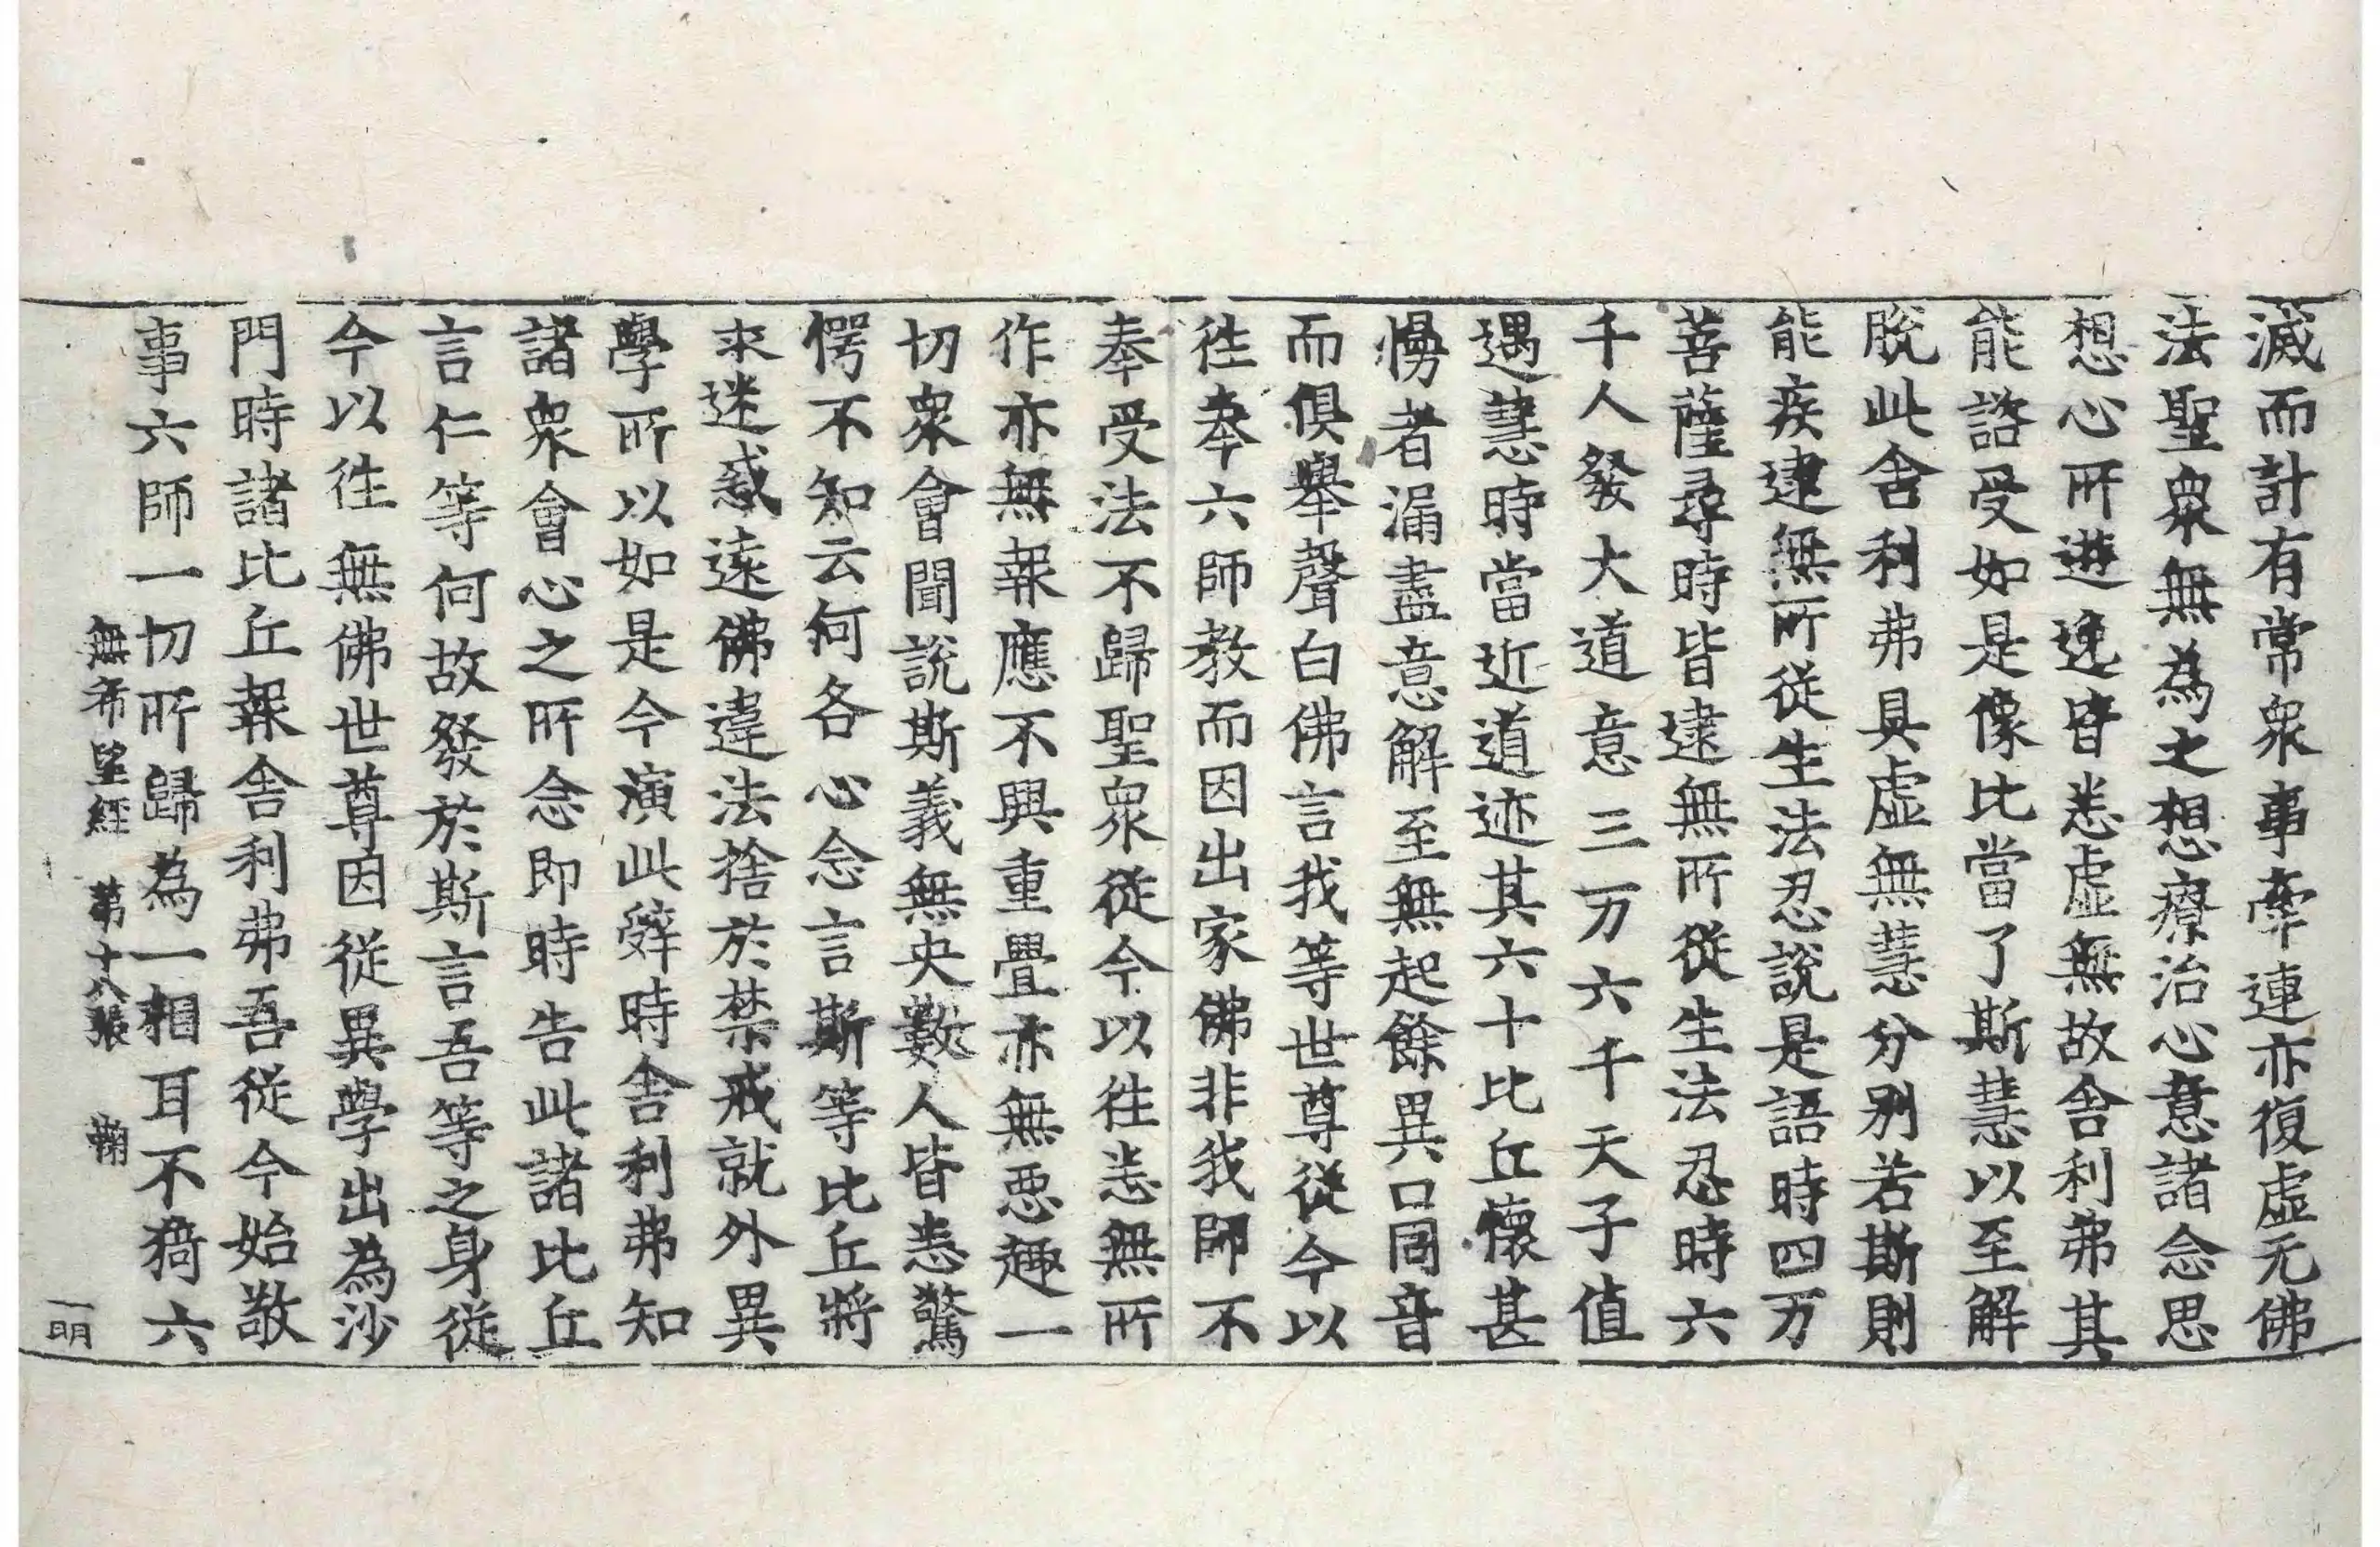 滅而計有常衆事牽連亦復虛无佛
法聖衆無為之想療治心意諸念思
想心所遊逸皆悉虛無故舍利弗其
能諮受如是像比當了斯慧以至解
脫此舍利弗具虛無慧分別若斯則
能疾逮無所從生法忍說是語時四万
菩薩尋時皆逮無所從生法忍時六
千人發大道意三万六千天子值
遇慧時當近道迹其六十比丘懷甚
慢者漏盡意解至無起餘異口同音
而俱舉聲白佛言我等世尊從今以
往奉六師教而因出家佛非我師不
奉受法不歸聖衆從今以往悉無所
作亦無報應不興重疊亦無惡趣一
切衆會聞說斯義無央數人皆悉驚
愕不知云何各心念言斯等比丘將
来迷惑遠佛違法捨於禁戒就外異
學所以如是今演此辭時舍利弗知
諸衆會心之所念即時告此諸比丘
言仁等何故發於斯言吾等之身從
今以往無佛世尊因從異學出為沙
門時諸比丘報舍利弗吾從今始敬
事六師一切所歸為一相耳不猗六
無希望經 第十八張 鞠
一明